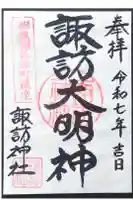 奉拝
令和七年吉日
諏訪大明神
諏訪神社